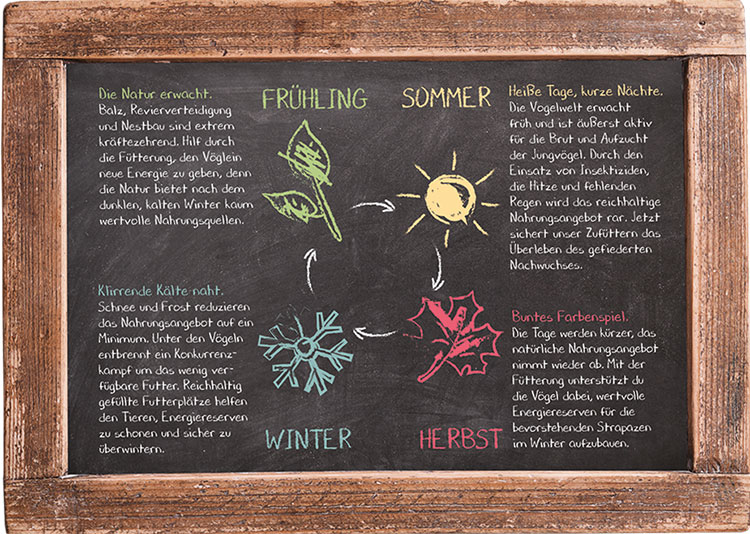 FRÜHLING
Die Natur erwacht.
Balz, Revierverteidigung
und Nestbau sind extrem
kräftezehrend. Hilf durch
die Fütterung, den Vöglein
neue Energie zu geben, denn
die Natur bietet nach dem
dunklen, kalten Winter kaum
wertvolle Nahrungsquellen.
SOMMER
Heiße Tage, kurze Nächte.
Die Vogelwelt erwacht
früh und ist äußerst aktiv
für die Brut und Aufzucht
der Jungvögel. Durch den
Einsatz von Insektiziden,
die Hitze und fehlenden
Regen wird das reichhaltige
Nahrungsangebot rar. Jetzt
sichert unser Zufüttern das
Überleben des gefiederten
Nachwuchses.
Klirrende Kälte naht.
Schnee und Frost reduzieren
das Nahrungsangebot auf ein
Minimum. Unter den Vögeln
entbrennt ein Konkurrenz-
kampf um das wenig ver-
fügbare Futter. Reichhaltig
gefüllte Futterplätze helfen
den Tieren, Energiereserven
zu schonen und sicher zu
überwintern.
WINTER
Buntes Farbenspiel.
Die Tage werden kürzer, das
natürliche Nahrungsangebot
nimmt wieder ab. Mit der
Fütterung unterstützt du
die Vögel dabei, wertvolle
Energiereserven für die
bevorstehenden Strapazen
im Winter aufzubauen.
HERBST